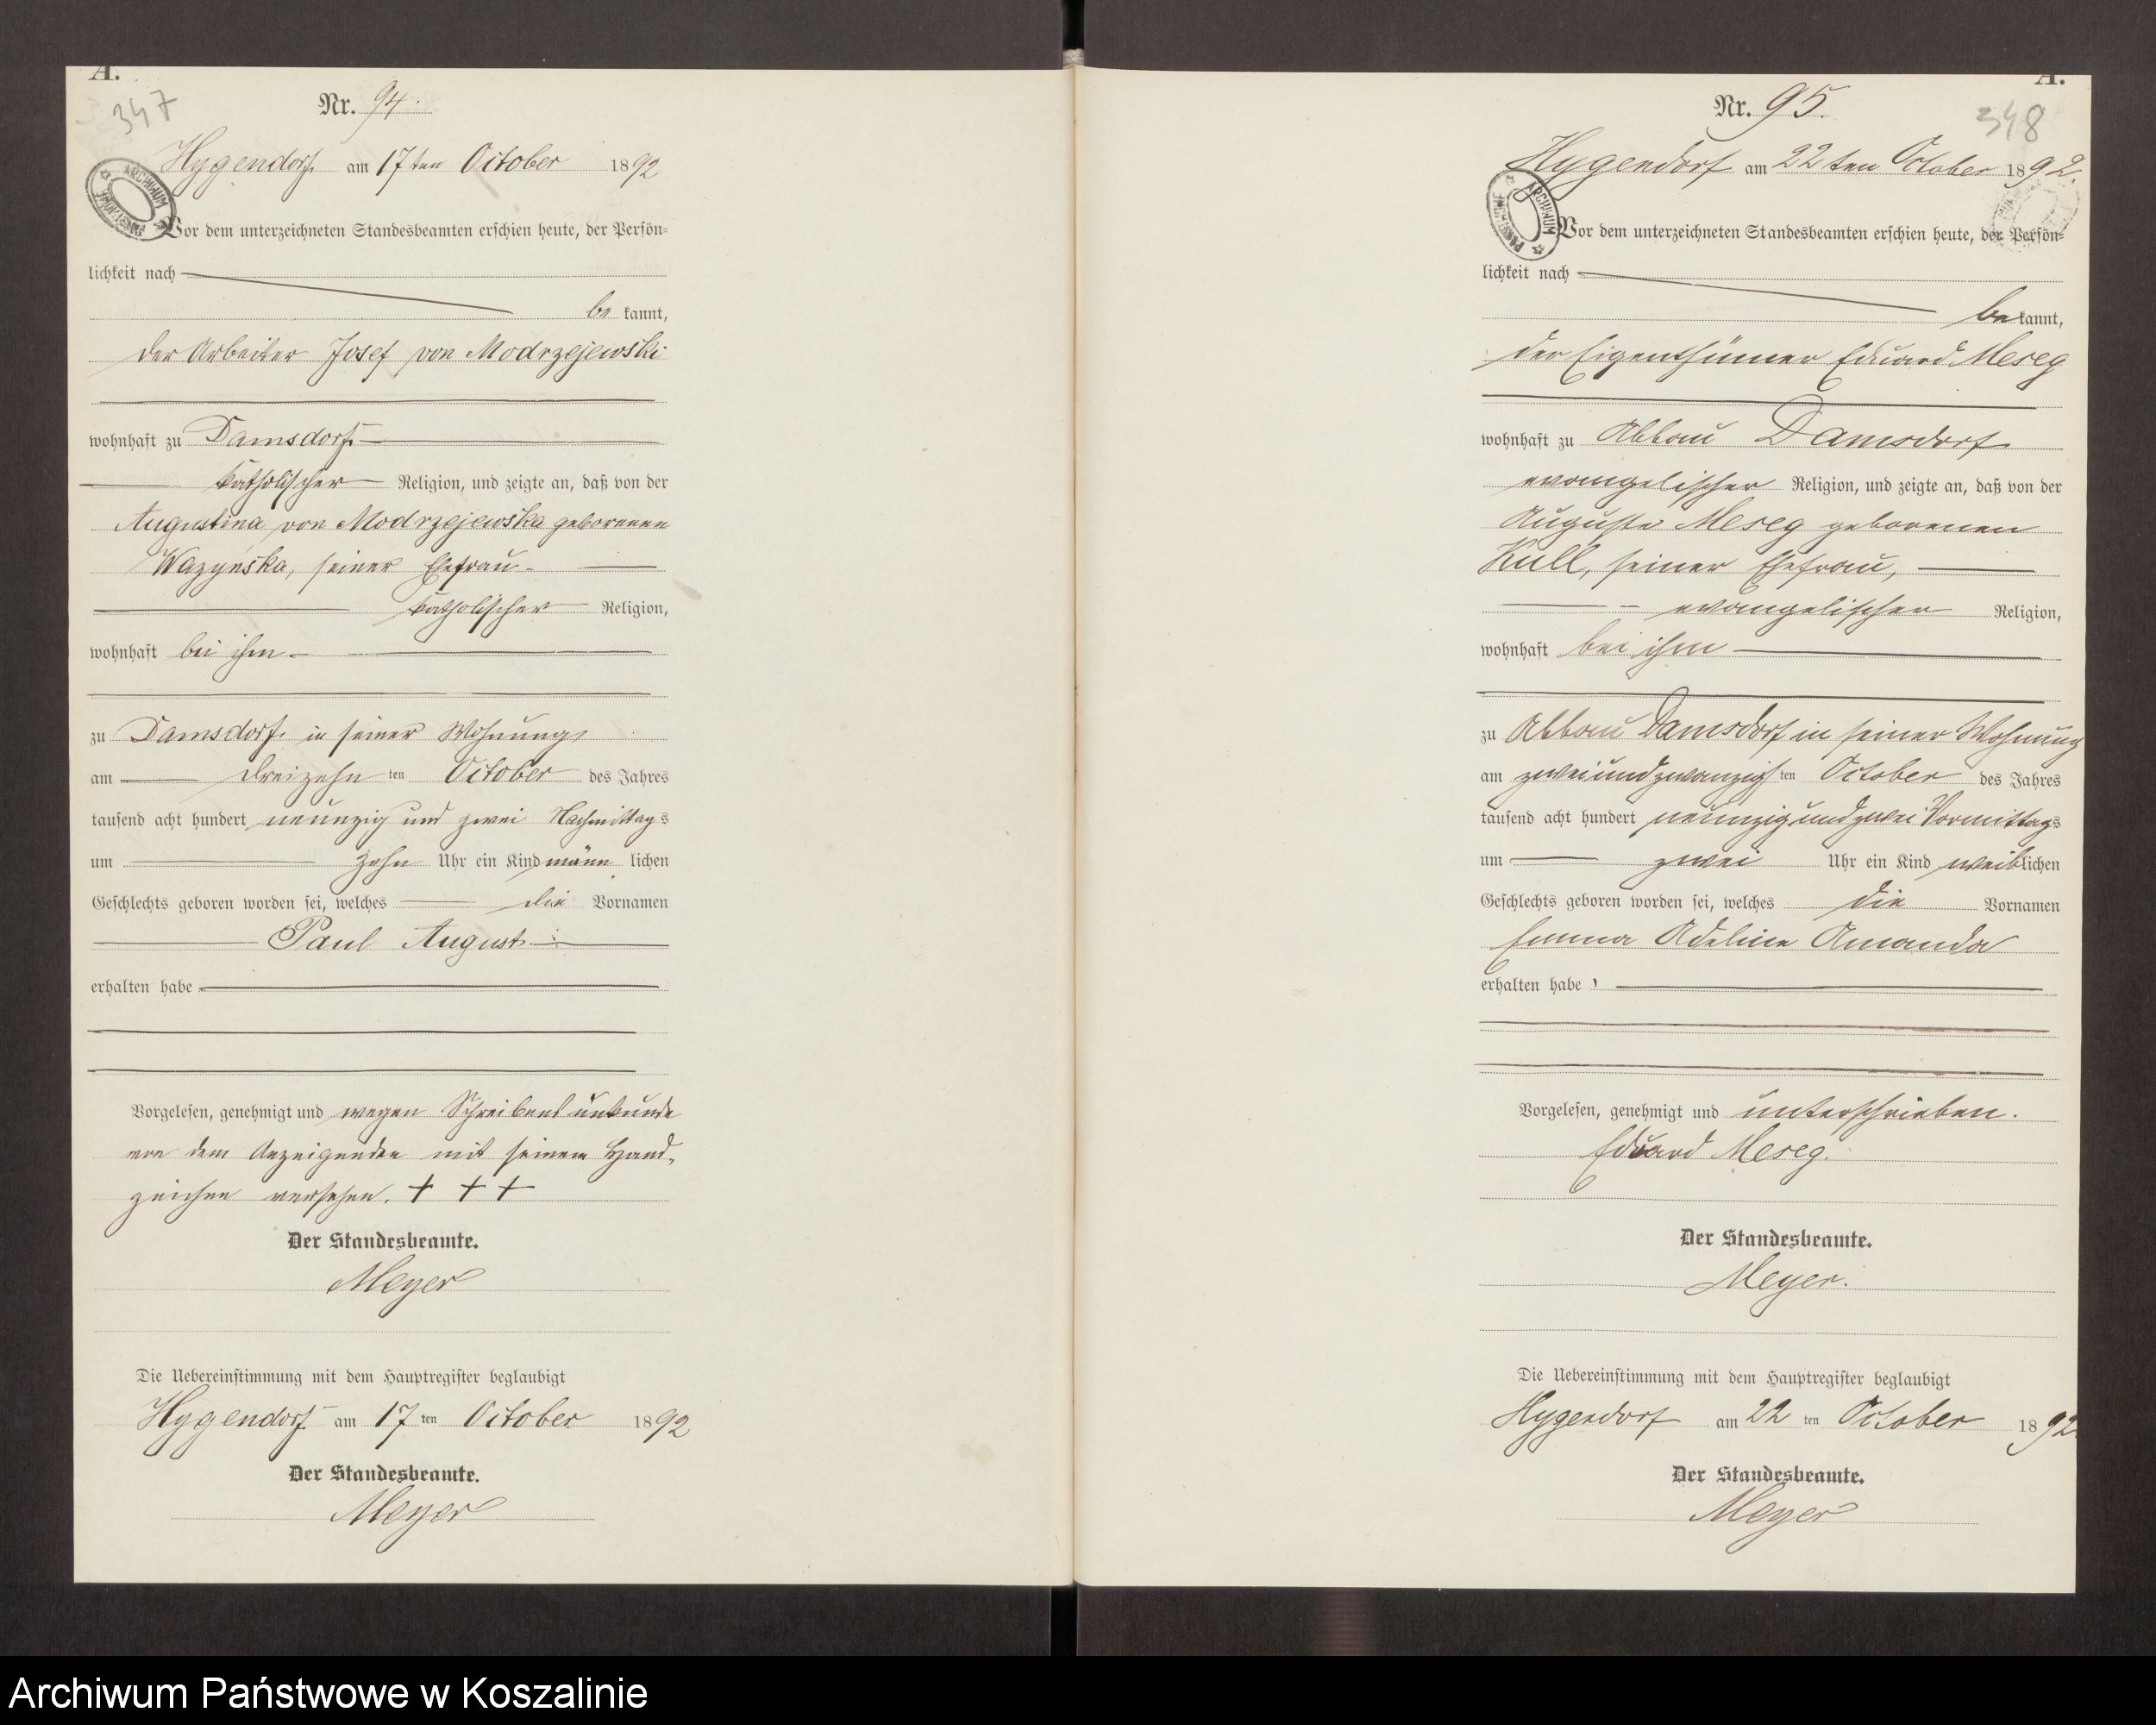 A.
347
Nr. 94.
Hygendorf am 17ten October 1892
ARCHIWUM PAŃSTWOWE
Vor dem unterzeichneten Standesbeamten erschien heute, der Persön=
lichkeit nach
be kannt,
der Arbeiter Josef von Modrzejewski
wohnhaft zu Damsdorf
katholischer Religion, und zeigte an, daß von der
Augustina von Modrzejewska geborenen
Wazynska, seiner Ehefrau
katholischer Religion,
wohnhaft bei ihm
zu Damsdorf in seiner Wohnung
am dreizehn ten October des Jahres
tausend acht hundert neunzig und zwei Nachmittags
um zehn Uhr ein Kind männlichen
Geschlechts geboren worden sei, welches die Vornamen
Paul August
erhalten habe
Vorgelesen, genehmigt und wegen Schreibensunkunde
von dem Anzeigenden mit seinem Hand-
zeichen versehen. + + +
Der Standesbeamte.
Meyer
Die Uebereinstimmung mit dem Hauptregister beglaubigt
Hygendorf am 17 ten October 1892
Der Standesbeamte.
Meyer
A.
348
Nr. 95.
Hygendorf am 22ten October 1892.
ARCHIWUM PAŃSTWOWE
Vor dem unterzeichneten Standesbeamten erschien heute, der Persön=
lichkeit nach
bekannt,
der Eigenthümer Eduard Meseg
wohnhaft zu Abbau Damsdorf
evangelischer Religion, und zeigte an, daß von der
Auguste Meseg geborenen
Kull, seiner Ehefrau,
evangelischer Religion,
wohnhaft bei ihm
zu Abbau Damsdorf in seiner Wohnung
am zweiundzwanzigsten October des Jahres
tausend acht hundert neunzig und zwei Vormittags
um zwei Uhr ein Kind weiblichen
Geschlechts geboren worden sei, welches die Vornamen
Emma Adeline Amanda
erhalten habe
Vorgelesen, genehmigt und unterschrieben.
Eduard Meseg.
Der Standesbeamte.
Meyer.
Die Uebereinstimmung mit dem Hauptregister beglaubigt
Hygendorf am 22 ten October 1892.
Der Standesbeamte.
Meyer
Archiwum Państwowe w Koszalinie